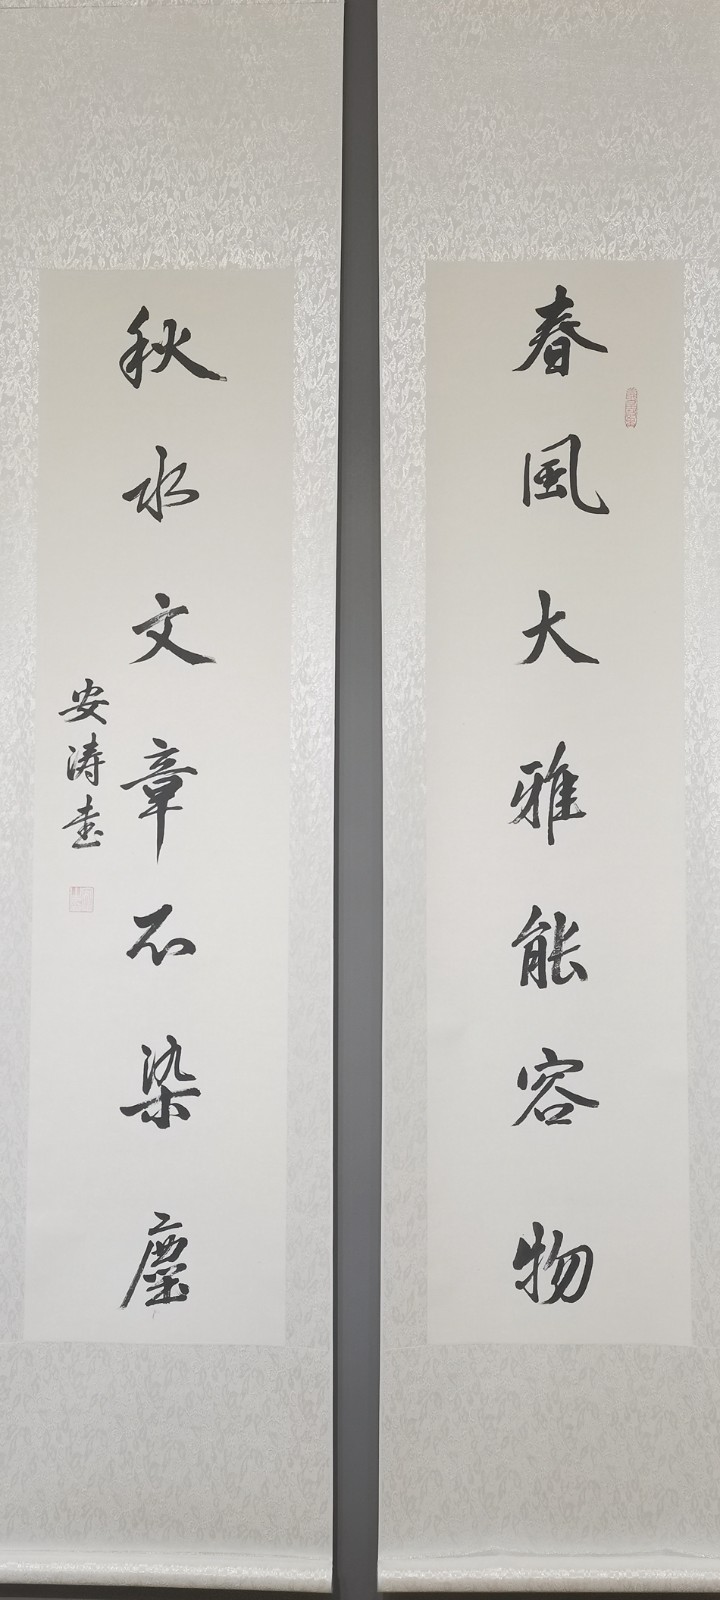 春風大雅能容物
秋水文章不染塵
安涛书